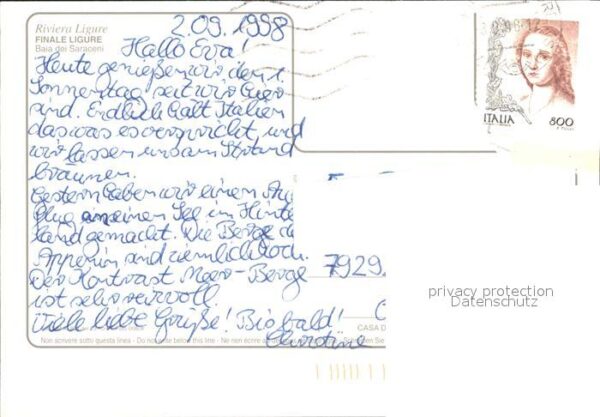 Riviera Ligure
FINALE LIGURE
Baia dei Saraceni
2.09.1998
Hallo Eva!
Heute genießen wir den 1.
Sonnentag, seit wir hier
sind. Endlich hält Italien
das was es verspricht, und
wir lassen uns am Strand
braunen.
Gestern haben wir einen
flug an einen See im Hinte
land gemacht. Die Berge
Appenin sind ziemlich hoch.
Der Kontrast Meer-Berge
ist sehr reizvoll.
Viele liebe Grüße! Bis bald!
Christine
ITALIA 800
7929
privacy protection
Datenschutz
CASA
Non scrivere sotto questa linea - Do not write below this line - Ne rien écrire